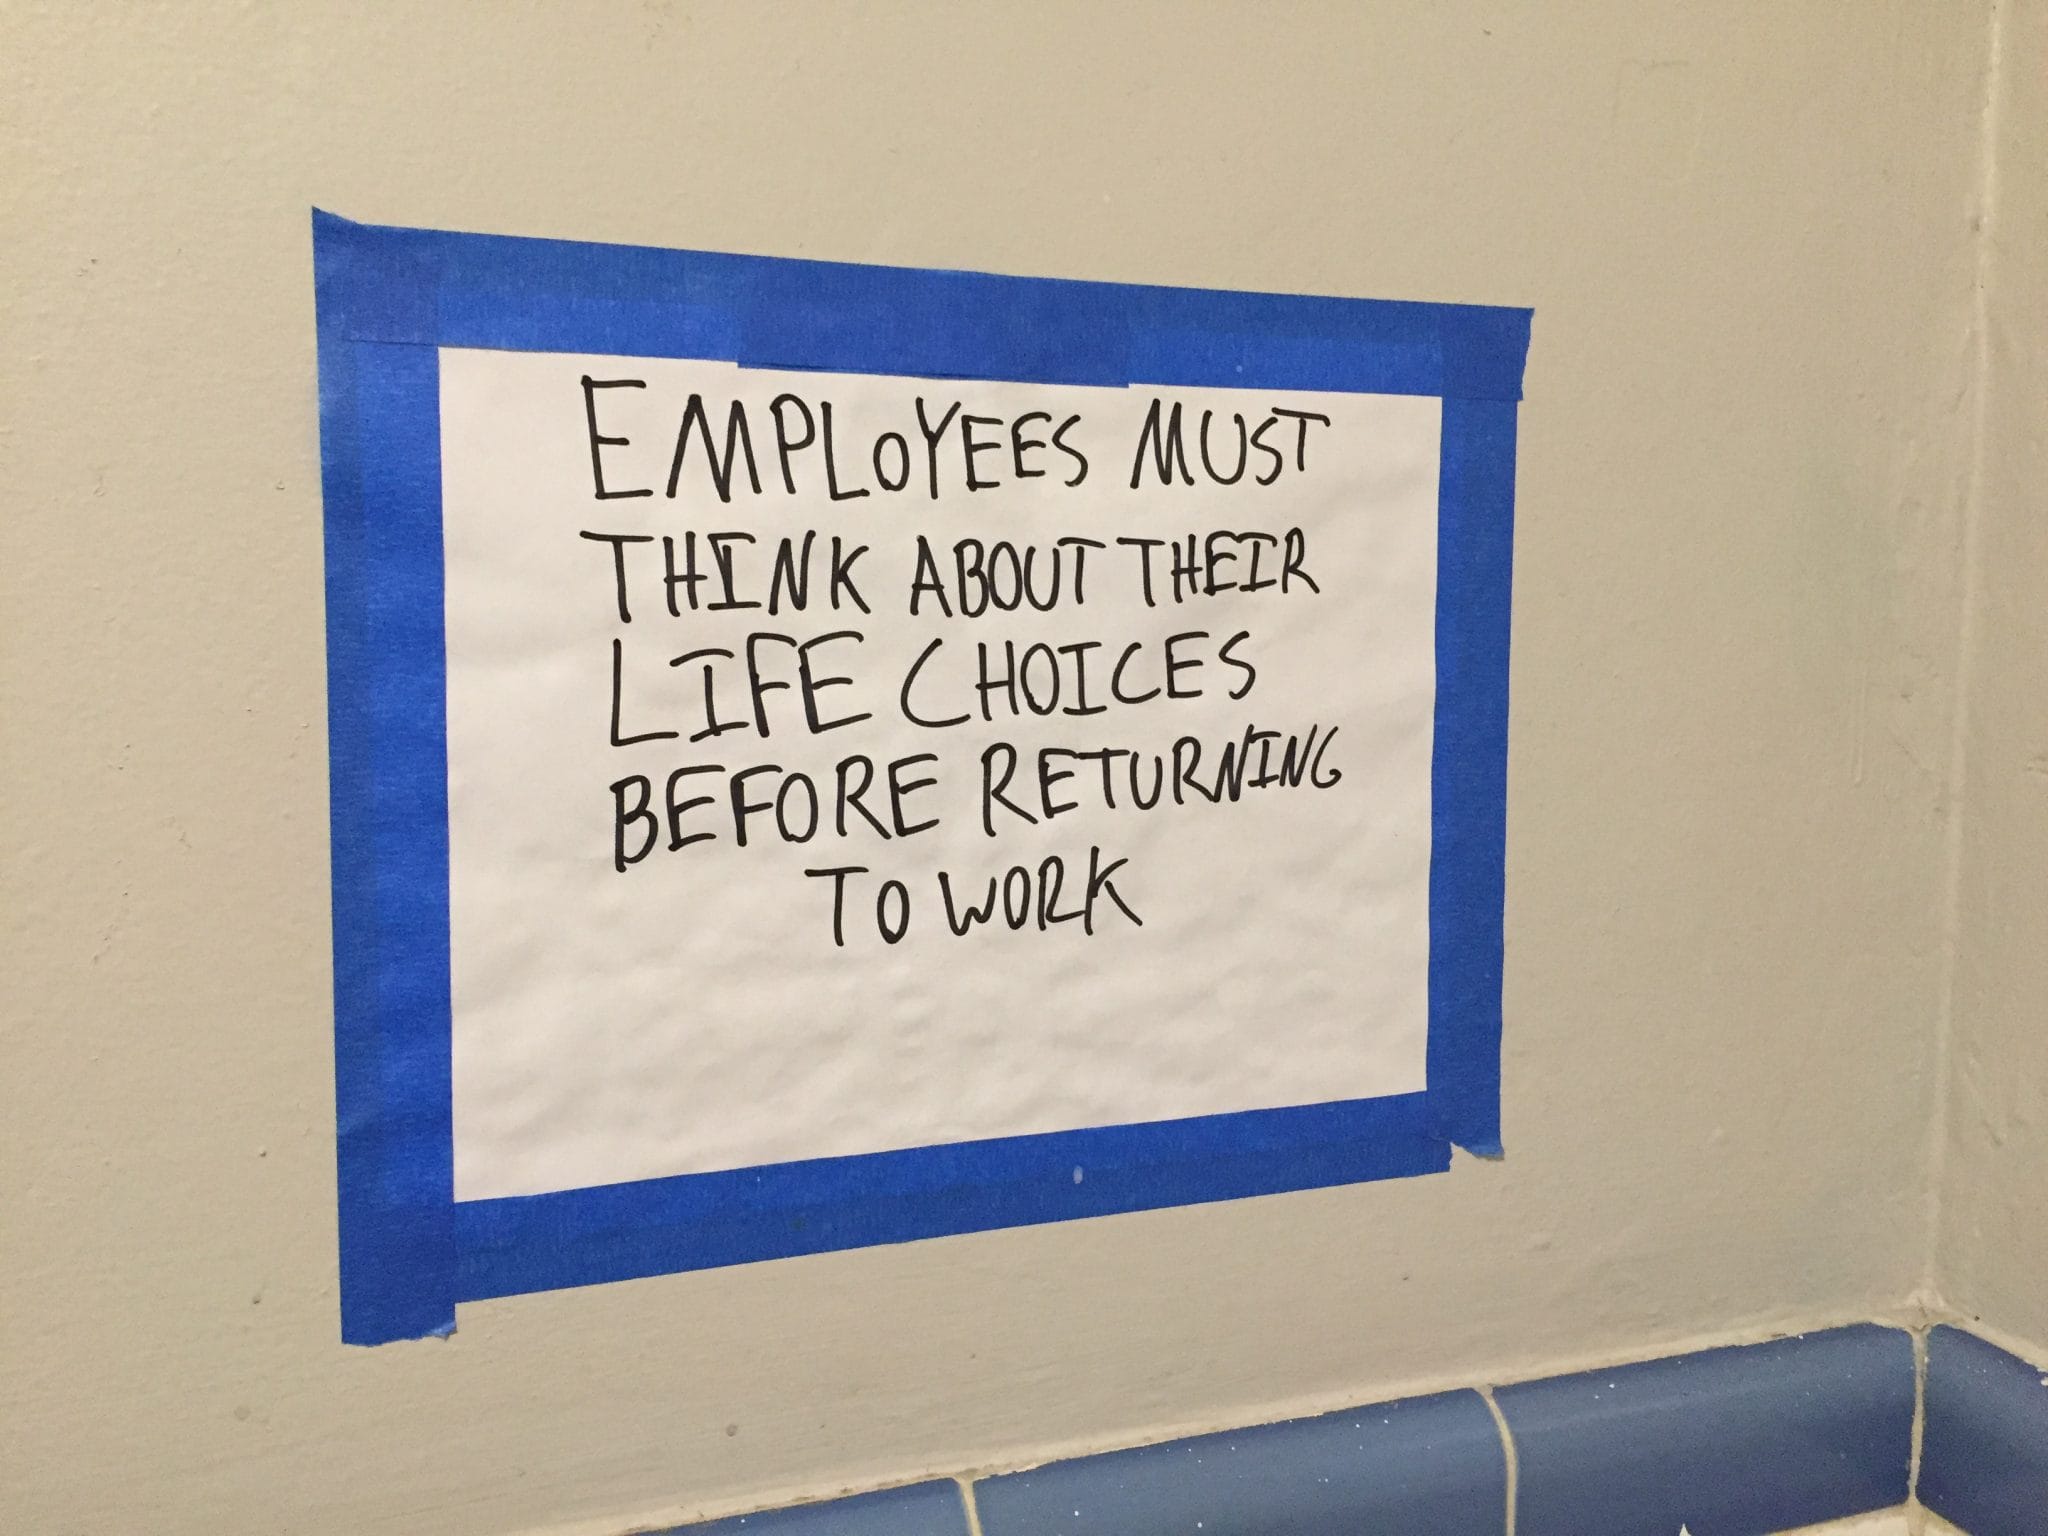 EMPLOYEES MUST
THINK ABOUT THEIR
LIFE CHOICES
BEFORE RETURNING
TO WORK